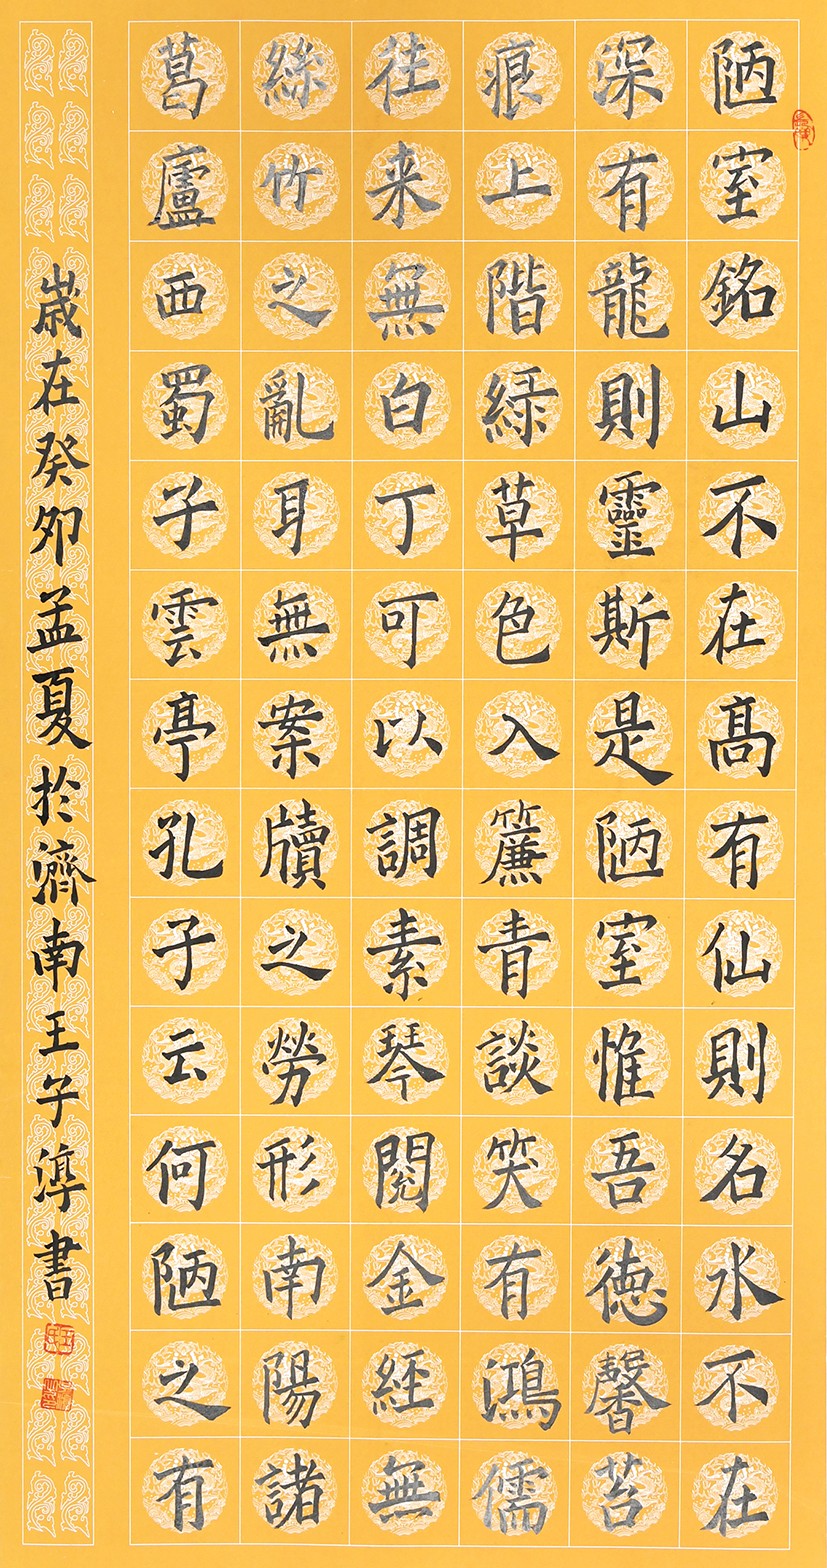 陋室銘山不在髙有仙則名水不在
深有龍則靈斯是陋室惟吾徳馨苔
痕上階緑草色入簾青談笑有鴻儒
往来無白丁可以調素琴閱金經無
絲竹之亂耳無案牘之勞形南陽諸
葛廬西蜀子雲亭孔子云何陋之有
歲在癸卯孟夏於濟南王子淳書